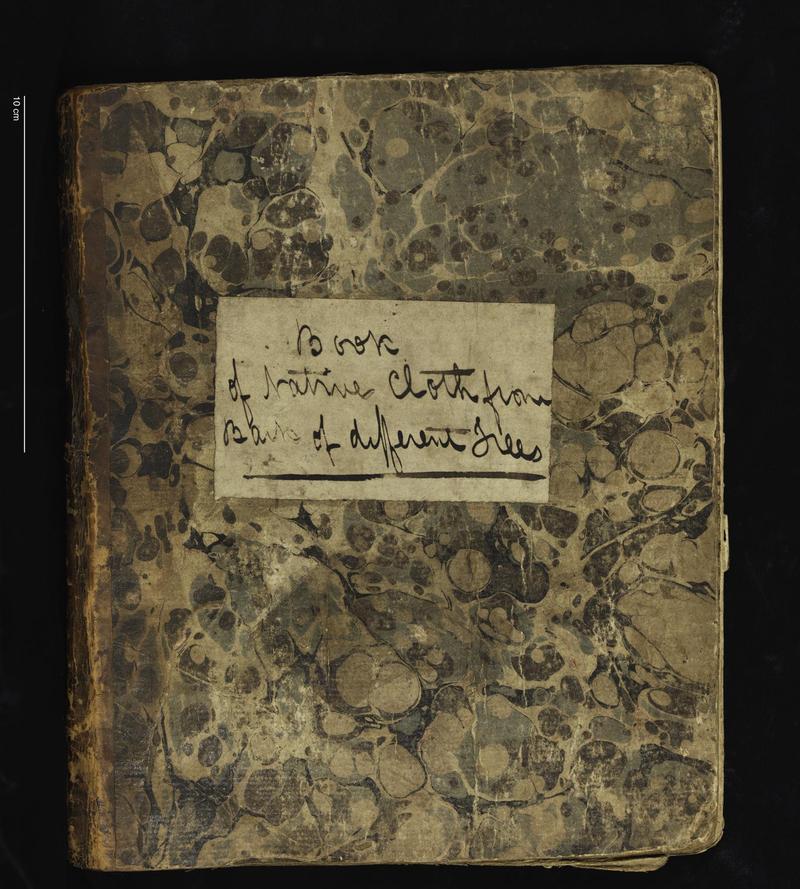 10 cm
Book
of Native Cloth from
Bark of different Trees